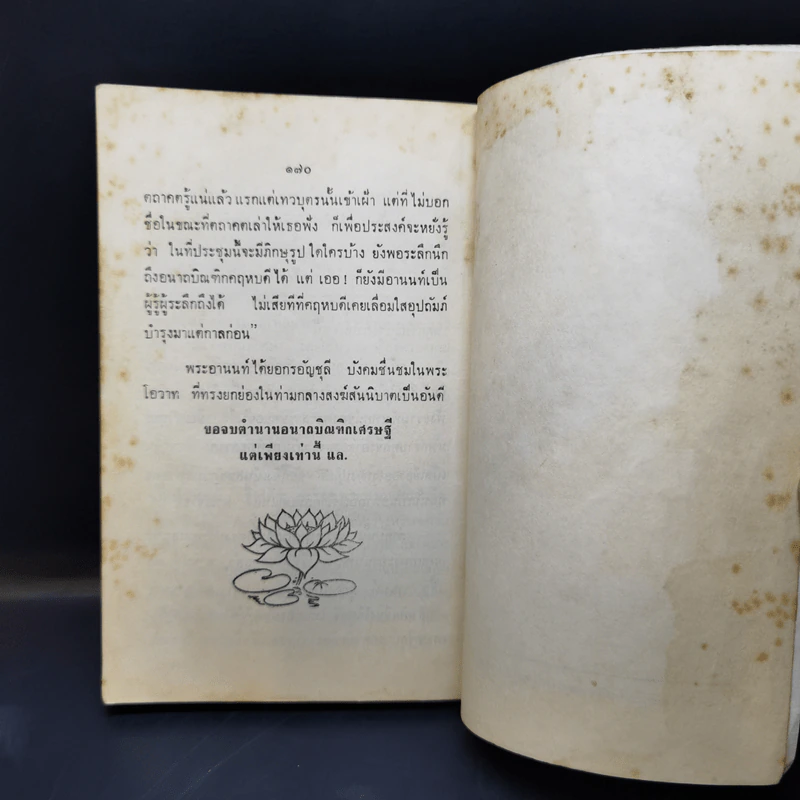 ๑๗๐
ตถาคตรู้แน่แล้ว แรกแต่เทวบุตรนั้นเข้าเฝ้า แต่ที่ไม่บอก
ชื่อในขณะที่ตถาคตเล่าให้เธอฟัง ก็เพื่อประสงค์จะหยั่งรู้
ว่า ในที่ประชุมนี้จะมีภิกษุรูปใดใครบ้าง ยังพอระลึกนึก
ถึงอนาถบิณฑิกคฤหบดีได้ แต่ เออ! ก็ยังมีอานนท์เป็น
ผู้รู้ผู้ระลึกถึงได้ ไม่เสียทีที่คฤหบดีเคยเลื่อมใสอุปถัมภ์
บำรุงมาแต่กาลก่อน”
พระอานนท์ได้ยอกรอัญชุลี บังคมชื่นชมในพระ
โอวาท ที่ทรงยกย่องในท่ามกลางสงฆ์สันนิบาตเป็นอันดี
ขอจบตำนานอนาถบิณฑิกเศรษฐี
แต่เพียงเท่านี้ แล.